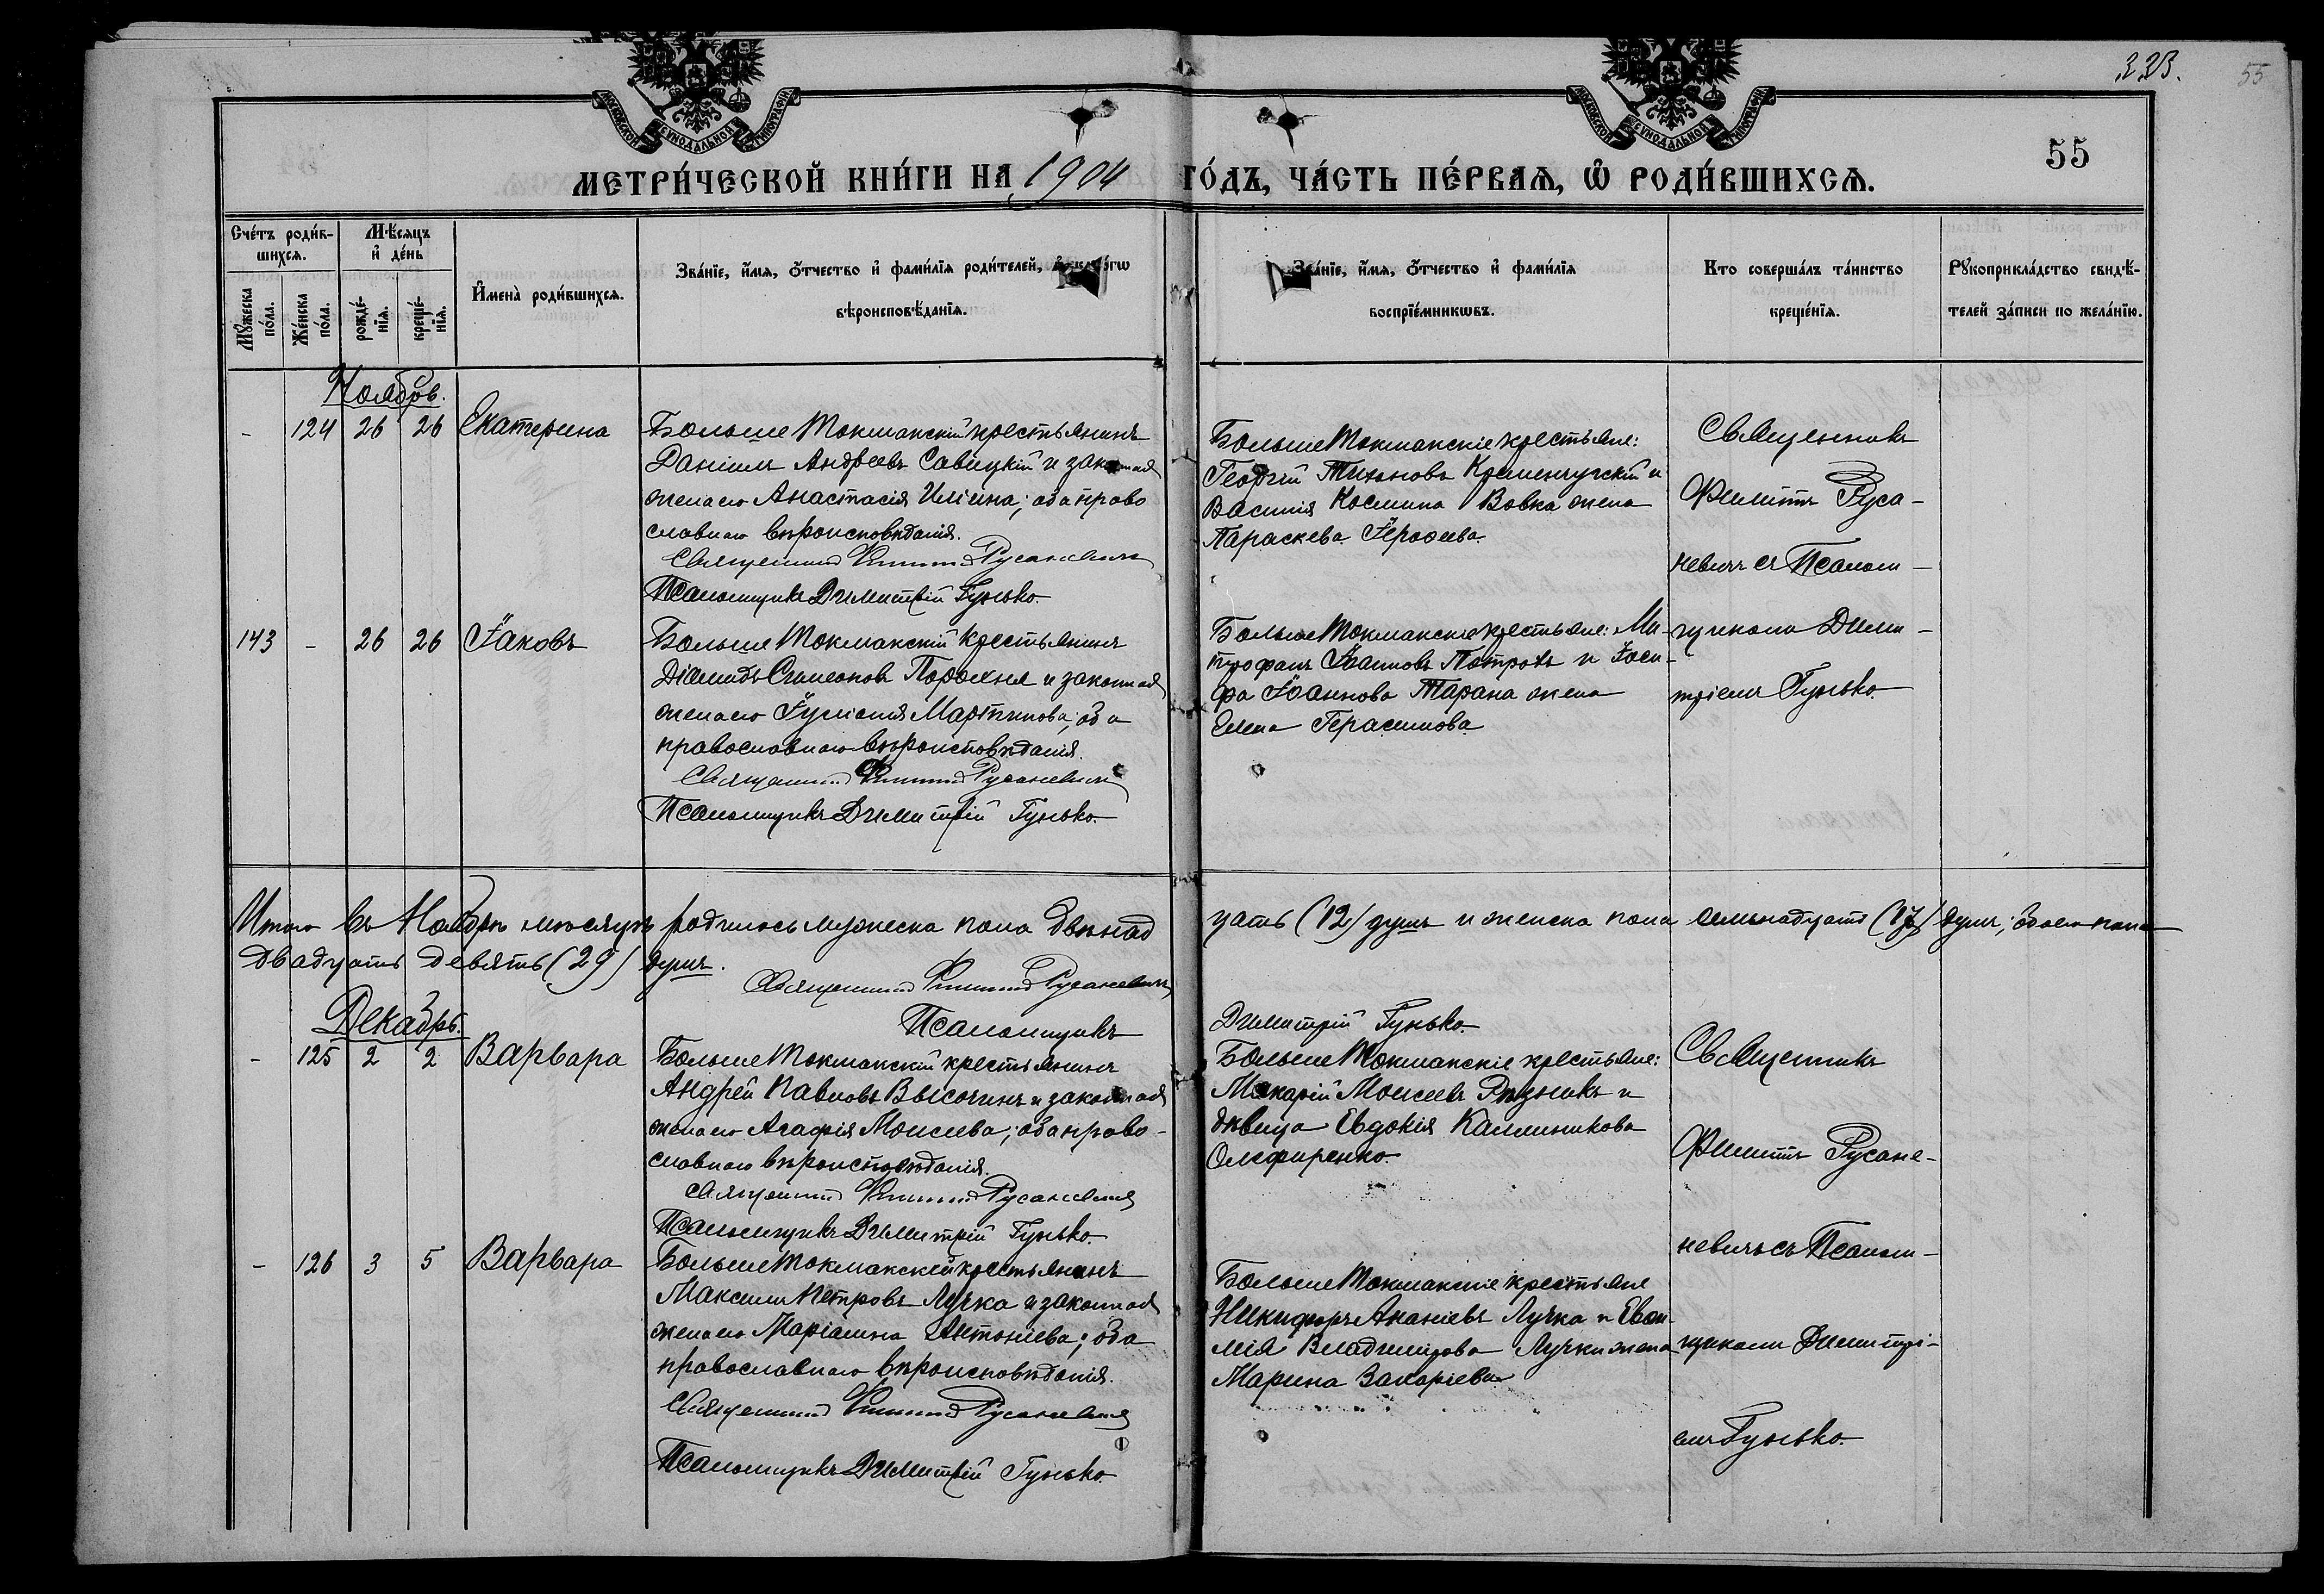 223.
55
55
МОСКОВСКОЙ СѴНОДАЛЬНОЙ ТИПОГРАФІИ
МОСКОВСКОЙ СѴНОДАЛЬНОЙ ТИПОГРАФІИ
МЕТРИ́ЧЕСКОЙ КНИ́ГИ НА 1904 ГО́ДЪ, ЧА́СТЬ ПЕ́РВАЯ, Ѡ РОДИ́ВШИХСЯ.
Сче́тъ роди́в-
шихся.
Мѣ́сяцъ
и де́нь
Мꙋжеска по́ла.
Же́нска по́ла.
рожде́-
нїя.
креще́-
нїя.
И҆мена̀ роди́вшихся.
Зва́нїе, и҆́мя, ѻ҆́тчество и҆ фами́лїя роди́телей,
вѣроисповѣ́данїя.
Зва́нїе, и҆́мя, ѻ҆́тчество и҆ фами́лїя
воспрїе́мникѡвъ.
Кто соверша́лъ та́инство
креще́нїя.
Рꙋкоприкла́дство свидѣ́-
телей за́писи по жела́нїю.
Ноябрь.
- 124 26 26 Екатерина
Больше Токмакскій крестьянинъ
Даніилъ Андреевъ Савицкій и законная
жена его Анастасія Иліина; оба право
славнаго вѣроисповѣданія.
Священникъ Филиппъ Русаневичъ
Псаломщикъ Димитрій Гунько.
Больше Токмакскіе крестьяне:
Георгій Тихоновъ Кременчугскій и
Василія Космина Вовка жена
Параскева Іероѳеева.
Священникъ
Филиппъ Руса-
невичъ съ Псалом-
щикомъ Дими-
тріемъ Гунько.
143 - 26 26 Іаковъ
Больше Токмакскій крестьянинъ
Діомидъ Симеоновъ Порохня и законная
жена его Іуліанія Мартинова; оба
православнаго вѣроисповѣданія.
Священникъ Филиппъ Русаневичъ
Псаломщикъ Димитрій Гунько.
Больше Токмакскіе крестьяне: Ми-
трофанъ Іоанновъ Петровъ и Іоси-
фа Іоаннова Тарана жена
Елена Герасимова
Итого въ Ноябрѣ мѣсяцѣ родилось мужеска пола двѣнад
цать (12) душъ и женска пола семьнадцать (17) душъ; обоего пола
двадцать девять (29) душъ.
Священникъ Филиппъ Русаневичъ
Псаломщикъ
Димитрій Гунько.
Декабрь.
- 125 2 2 Варвара
Больше Токмакскій крестьянинъ
Андрей Павловъ Высочинъ и законная
жена его Агафія Моисеева; оба право-
славнаго вѣроисповѣданія.
Священникъ Филиппъ Русаневичъ
Псаломщикъ Димитрій Гунько.
Больше Токмакскіе крестьяне:
Макарій Моисеевъ Рѣзникъ и
дѣвица Евдокія Каллиникова
Олефиренко.
Священникъ
Филиппъ Русане-
невичъ съ Псалом-
щикомъ Димитрі-
емъ Гунько.
- 126 3 5 Варвара
Больше Токмакскій крестьянинъ
Максимъ Петровъ Лучка и законная
жена его Маріамна Антоніева; оба
православнаго вѣроисповѣданія.
Священникъ Филиппъ Русаневичъ
Псаломщикъ Димитрій Гунько.
Больше Токмакскіе крестьяне
Никифоръ Ананіевъ Лучка и
Владимирова Лучки жена
Марина Захаріева